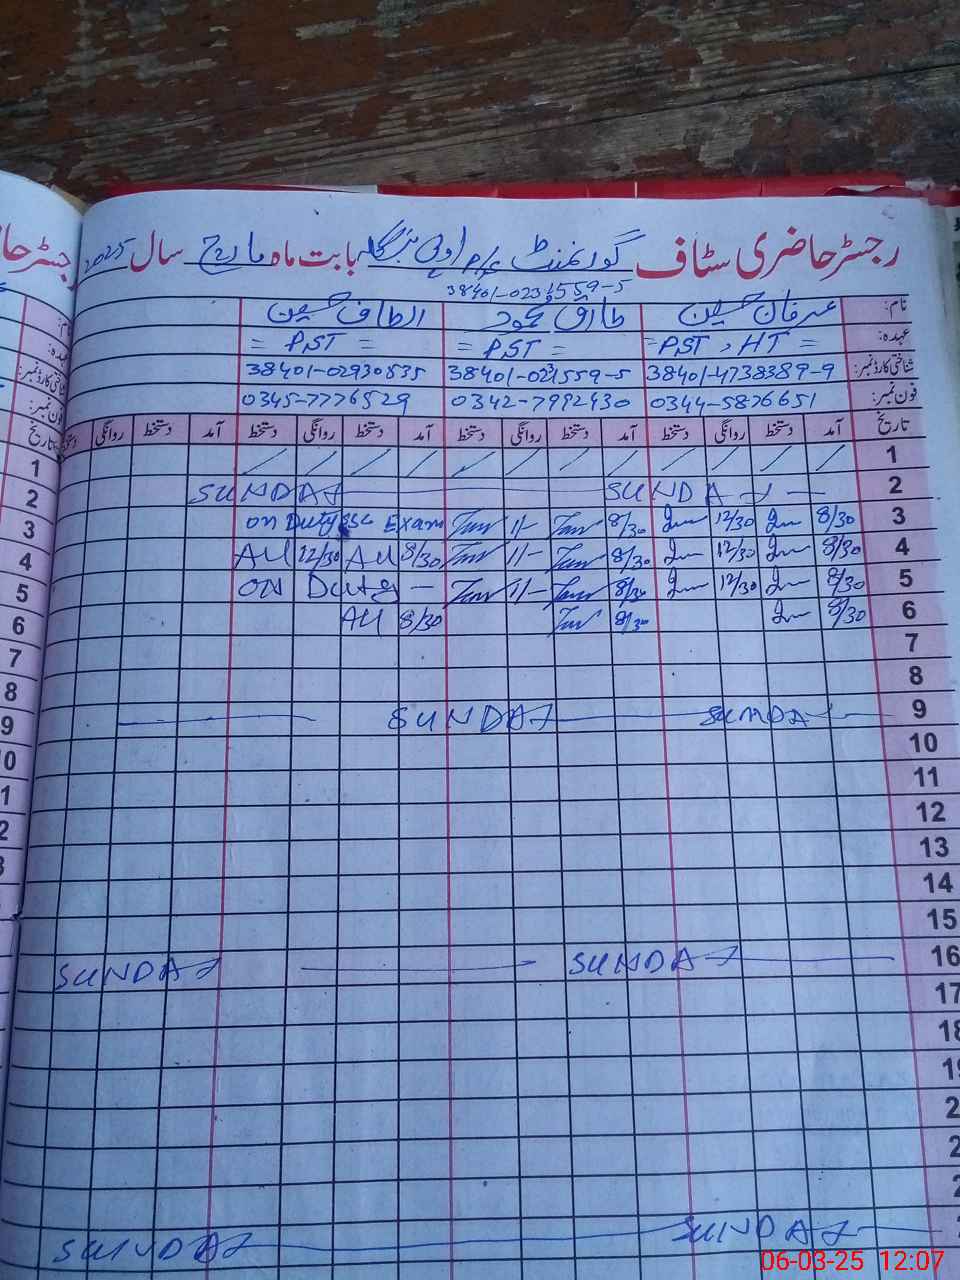 رجسٹر حاضری سٹاف گورنمنٹ P/S بابت ماہ مارچ سال 2025
38401-0231559-5
نام: عرفان حسین طارق محمود الطاف حسین
عہدہ: = PST , HT = = PST = = PST =
شناختی کارڈ نمبر: 38401-4738389-9 38401-0231559-5 38401-02930835
فون نمبر: 0344-5876651 0342-7992430 0345-7776529
تاریخ آمد دستخط روانگی دستخط آمد دستخط روانگی دستخط آمد دستخط روانگی دستخط آمد دستخط روانگی دستخط
1
2 SUNDAY SUNDAY
3 8/30 12/30 8/30 11/- on Duty SSC Exam
4 8/30 12/30 8/30 11/- 8/30 Ali 12/30 Ali
5 8/30 12/30 8/30 11/- on Duty
6 8/30 8/30 8/30 Ali
7
8
9 SUNDAY SUNDAY
10
11
12
13
14
15
16 SUNDAY SUNDAY
17
18
SUNDAY SUNDAY
06-03-25 12:07